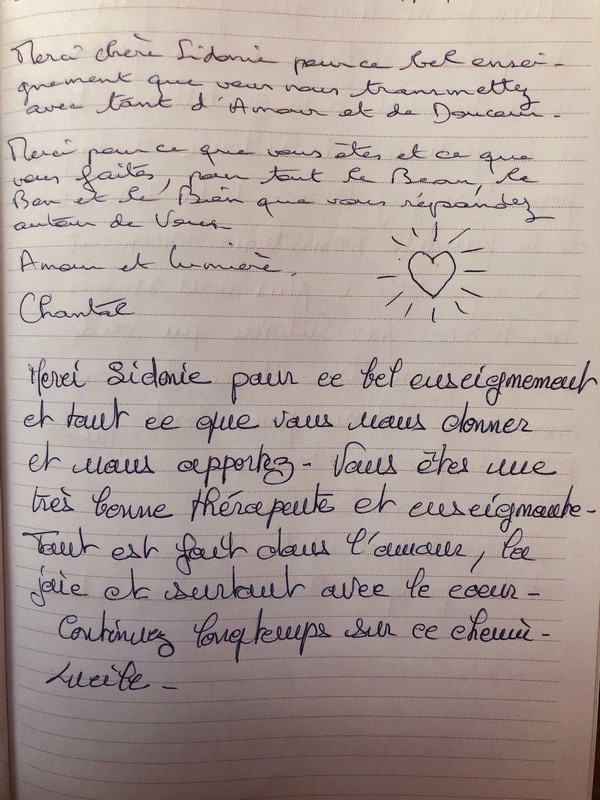 Merci chère Sidonie pour ce bel ensei-
gnement que vous nous transmettez
avec tant d'Amour et de Douceur.
Merci pour ce que vous êtes et ce que
vous faites, pour tout le Beau, le
Bon et le Bien que vous répandez
autour de Vous
Amour et lumière.
Chantal
Merci Sidonie pour ce bel enseignement
et tout ce que vous nous donner
et nous apportez - Vous êtes une
très bonne thérapeute et enseignante -
Tout est fait dans l'amour, la
joie et surtout avec le coeur -
Continuez longtemps sur ce chemin -
Lucile -